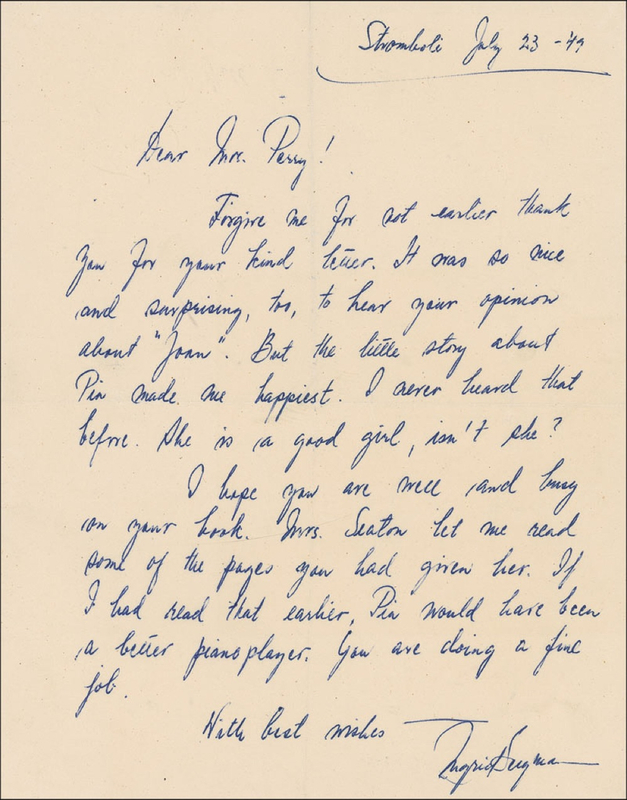 Stromboli July 23 - 49
Dear Mrs. Perry!
Forgive me for not earlier thank
you for your kind letter. It was so nice
and surprising, too, to hear your opinion
about "Joan". But the little story about
Pia made me happiest. I never heard that
before. She is a good girl, isn't she?
I hope you are well and busy
on your book. Mrs. Seaton let me read
some of the pages you had given her. If
I had read that earlier, Pia would have been
a better pianoplayer. You are doing a fine
job.
With best wishes
Ingrid Bergman